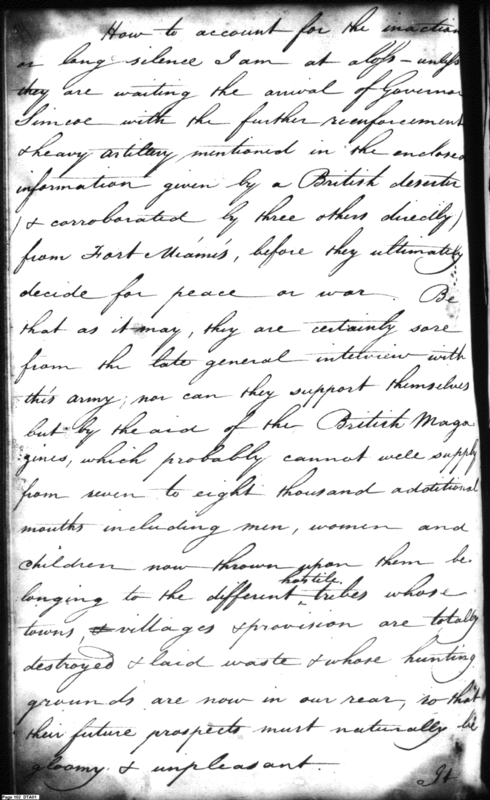 How to account for the inaction
or long silence I am at a loss - unless
they are waiting the arrival of Governor
Simcoe with the further reenforcement
& heavy artillery, mentioned in the enclosed
information given by a British deserter
(& corroborated by three others directly)
from Fort Miámis, before they ultimately
decide for peace or war. Be
that as it may, they are certainly sore
from the late general interview with
this army; nor can they support themselves
but by the aid of the British Maga
zines, which probably cannot well supply
from seven to eight thousand additional
mouths including men, women and
children now thrown upon them be-
longing to the different hostile tribes whose
towns, villages & provision are totally
destroyed & laid waste & whose hunting
grounds are now in our rear, so that
their future prospects must naturally be
gloomy & unpleasant.
It
Page 102